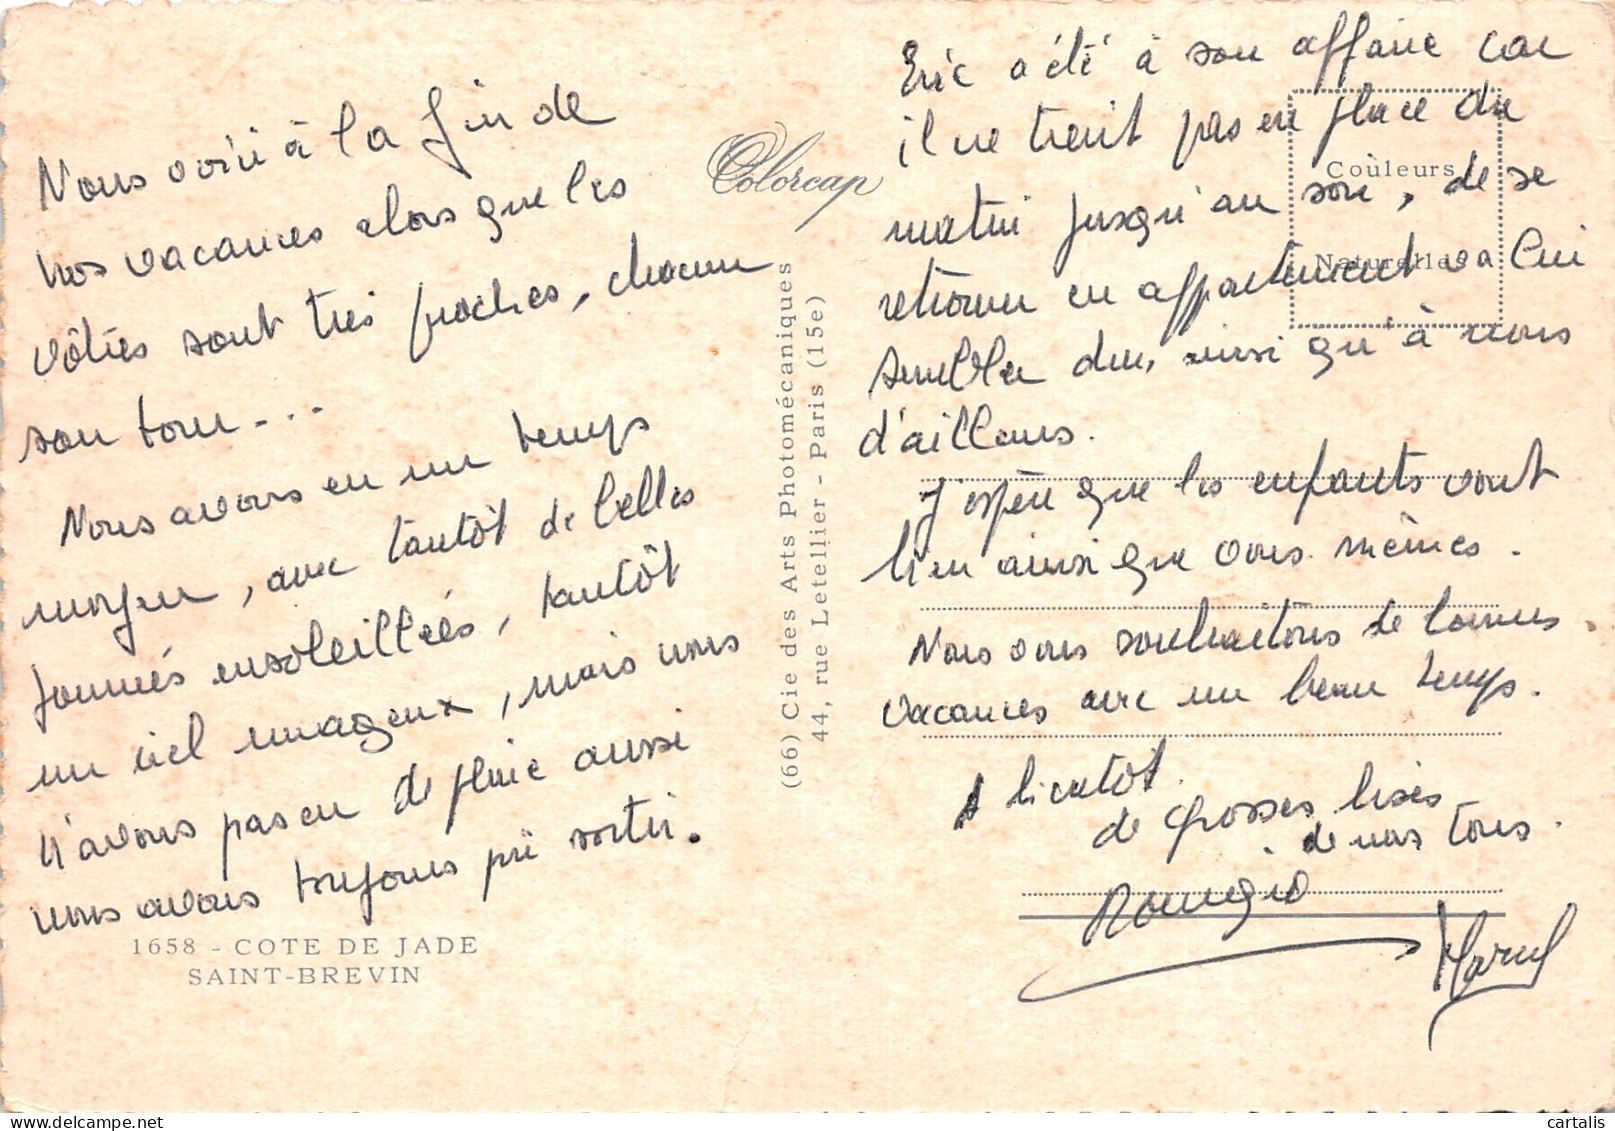 Nous voici à la fin de
nos vacances alors que les
vôtres sont très proches, chacun
son tour...
Nous avons eu un temps
moyen, avec tantôt de belles
journées ensoleillées, tantôt
un ciel nuageux, mais nous
n'avons pas eu de pluie aussi
nous avons toujours pu sortir.
1658 - COTE DE JADE
SAINT-BREVIN
Colorcap
(66) Cie des Arts Photomécaniques
44, rue Letellier - Paris (15e)
Couleurs
Naturelles
Eric a été à son affaire car
il ne tient pas en place du
matin jusqu'au soir, de se
retrouver en appartement va lui
sembler dur, ainsi qu'à nous
d'ailleurs.
J'espère que les enfants vont
bien ainsi que vous mêmes.
Nous vous souhaitons de bonnes
vacances avec un beau temps.
A bientôt.
de grosses bises
de nous tous.
Marcel
cartalis